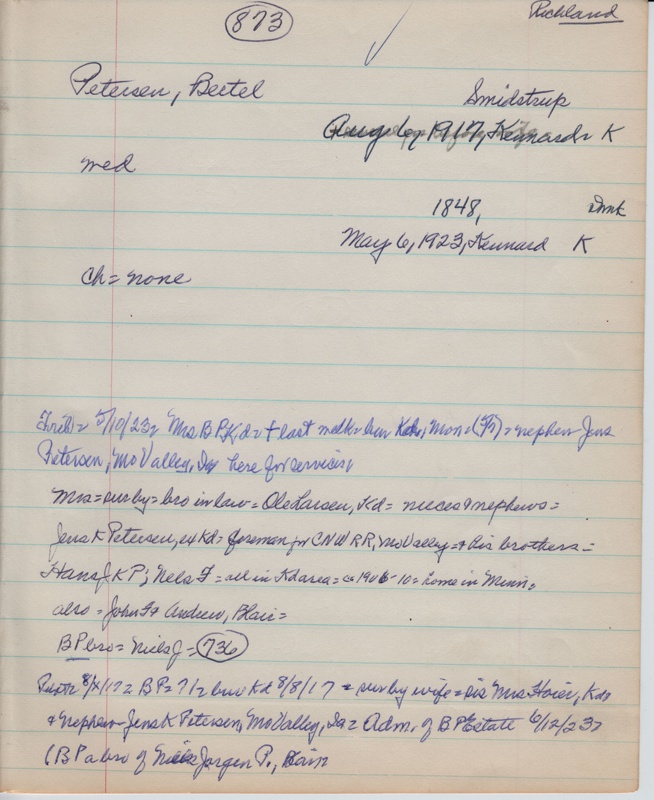 873
Richland
Petersen, Bertel
Smidstrup
Aug 6, 1917, Kennard K
med
1848, Dmk
May 6, 1923, Kennard K
Ch = none
Trib = 5/10/23 = Mrs B P, Kd = + last wedk = bur Kd =, Mon = (Fr) = nephew Jens
Petersen, Mo Valley, Ia here for services,
Mrs = sur by = bro in law = Ole Larsen, Kd = nieces & nephews =
Jens K Petersen, ex Kd = foreman for CNW RR, Mo Valley = + his brothers =
Hans J K P; Nels F = all in Kd area = ca 1906-10 = home in Minn =
also = John F & Andrew, Blair =
BP bro = Niels J = 736
8/8/17 = BP = 71 = bur Kd 8/8/17 = sur by wife = sis Mrs Hoier, Kd =
& nephew Jens K Petersen, Mo Valley, Ia = Adm. of BP Estate 6/12/23 =
(BP a bro of Jorgen P., Blair